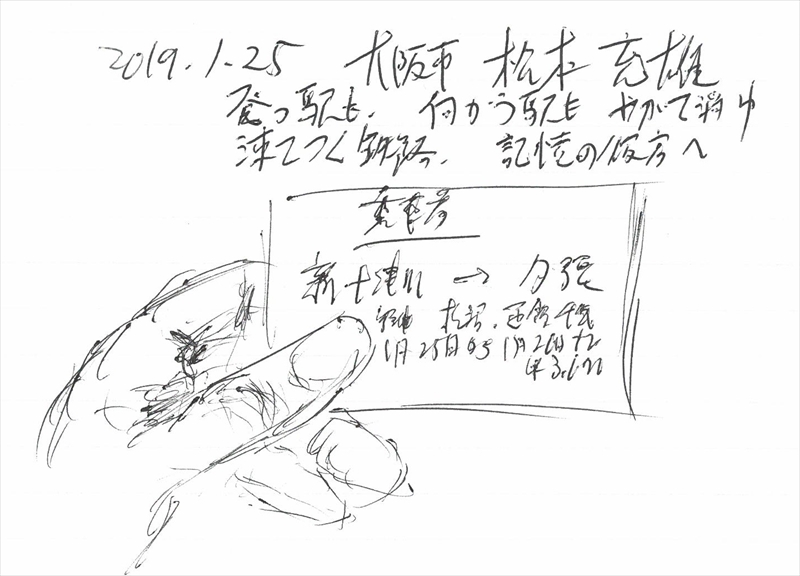 2019.1.25 大阪市 松本 充雄
発つ駅も、向かう駅も やがて消ゆ
凍てつく鉄路、記憶の彼方へ
乗車券
新十津川 → 夕張
経由 札沼、函館、千歳
1月25日から1月26日